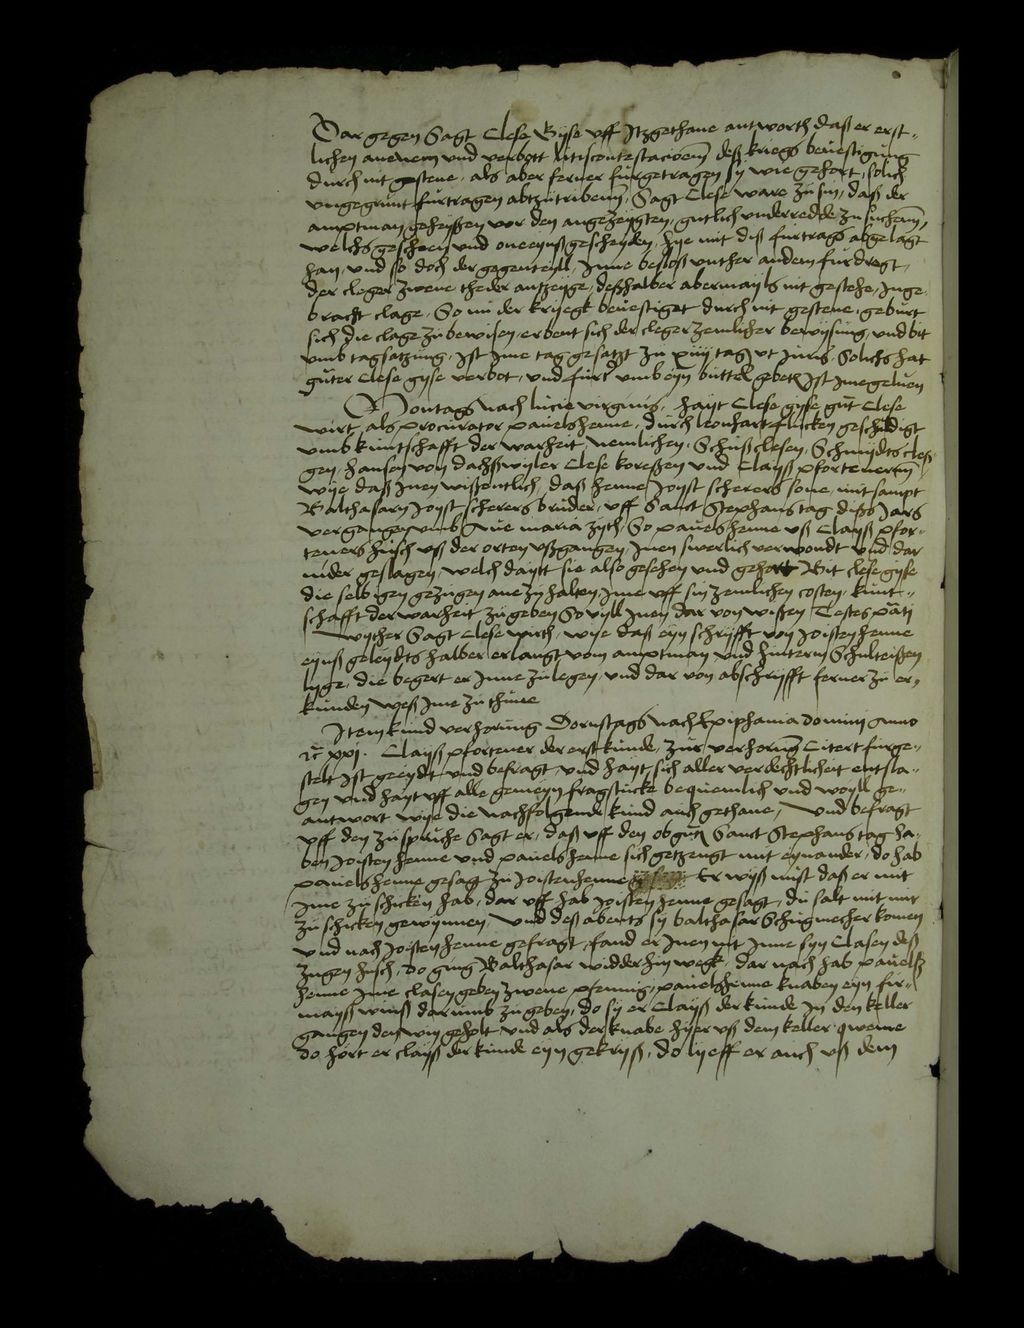 Dar gegen Sagt Clese Gyse uff Itzgethane antworth daß er erst-
lichen anenem und verbott litiscontestacionem deß kriegs bevestigung
durch nit gestene, als aber ferner furgetragen sy wie gehort, solich
ungegrunt furtragen abtzutribenn, Sagt Clese ware zu sin, daß der
amptman geheyßen vor den angezeygten, gutlich underredde zu suchenn,
welchs gescheen und oneeynß gescheyden, hye mit diß furtrags abgelagt
han, und so doch der gegenteyll, Inne beschloß unther andern fur dregt,
der cleger zwene theder antzeyge, deßhalber abermayls nit gestehe, Inge-
bracht clage, So nu der kryegk bevestiget durch nit gestene, geburt
sich die clage zu bewisen, erbeut sich der cleger zemlicher bewysung, und bit
umb tagsatzung, Ist Ime tag gesatzt zu xiiij tag ut Juris, Solichs hat
guter Clese gyse verbot, und furt umb eyn buttel gebeten Ist Ime geluen
Montags nach lucie virginis, hayt Clese gyse gut Clese
wirt, als procurator pauelshenne, durch leonhart flucken geschedigt
umb kuntschafft der warheit, nemlichen, Schußclesen, Schmydts cleß-
gen, hansen von dachßwyler Clese koreßen und Clayß pfortenerenn
wye daß Inen wißentlich, daß henne Joyst scherers sone, mit sampt
Balthasarn Joyst scherers bruder, uff Sanct Stephans tag dißs Jars
vergangen umb Aue maria zyth, So pauelshenne uß Clayß pfor-
teners husch uß der orten ußgangen, Inen swerlich verwondt und dar
nider geslagen, welch dayt sie also gesehen und gehort Bit clese gyse
die selbigen gezugen ane zu halten, Ime uff sin zemlichen costen, kunt-
schafft der warheit zu geben So vyll Inen dar von wißen Testes parti
Wyther Sagt Clese wirth, wye daß eyn schryfft von Joisten henne
eynß geleydts halber erlangt vom amptman und hinterm Schulteißen
lyge, die begert er Inne zu legen, und dar von abschryfft ferner zu er-
kunden weß Ime zu thune
Item kund verhorung Dornstags nach Epiphania domini anno
xvc xxj. Clayß pfortener der erst kunde, zur verhorung Citert furge-
stelt Ist geeydt und befragt, und hayt sich aller verdechtlicheit entsla-
gen und hayt uff alle gemeyn fragstucke bequemlich und woyll ge-
antwort wye die nachfolgende kund auch gethane, und befragt
uff den zuspruche Sagt er, daß uff den obgnanten Sanct Stephans tag ha-
ben Joisten henne und pauelshenne sich getzengt mit eynander, do hab
pauelshenne gesagt zu Joistenhenne Er wyß nust daß er mit
Ime zu schicken hab, dar uff hab Joisten henne gesagt, du salt mit mir
zu schicken gewynnen, und deß abents sy balthasar Schugmecher komen
und nach Joisten henne gefragt, fand er Inen nit Inne syn Clasen deß
zugen husch, do ging Balthasar widder hin wegk, dar nach hab pauelß
henne Ime clasen geben zwene pfennig, pauelshenne knaben eyn fir-
mayß winß darumb zu geben, do sy er Clayß der kunde In den keller
gangen den win geholt und als der knabe hyer uß dem keller qweme
do hort er clayß der kunde eyn gekryß, do lyeff er auch uß dem